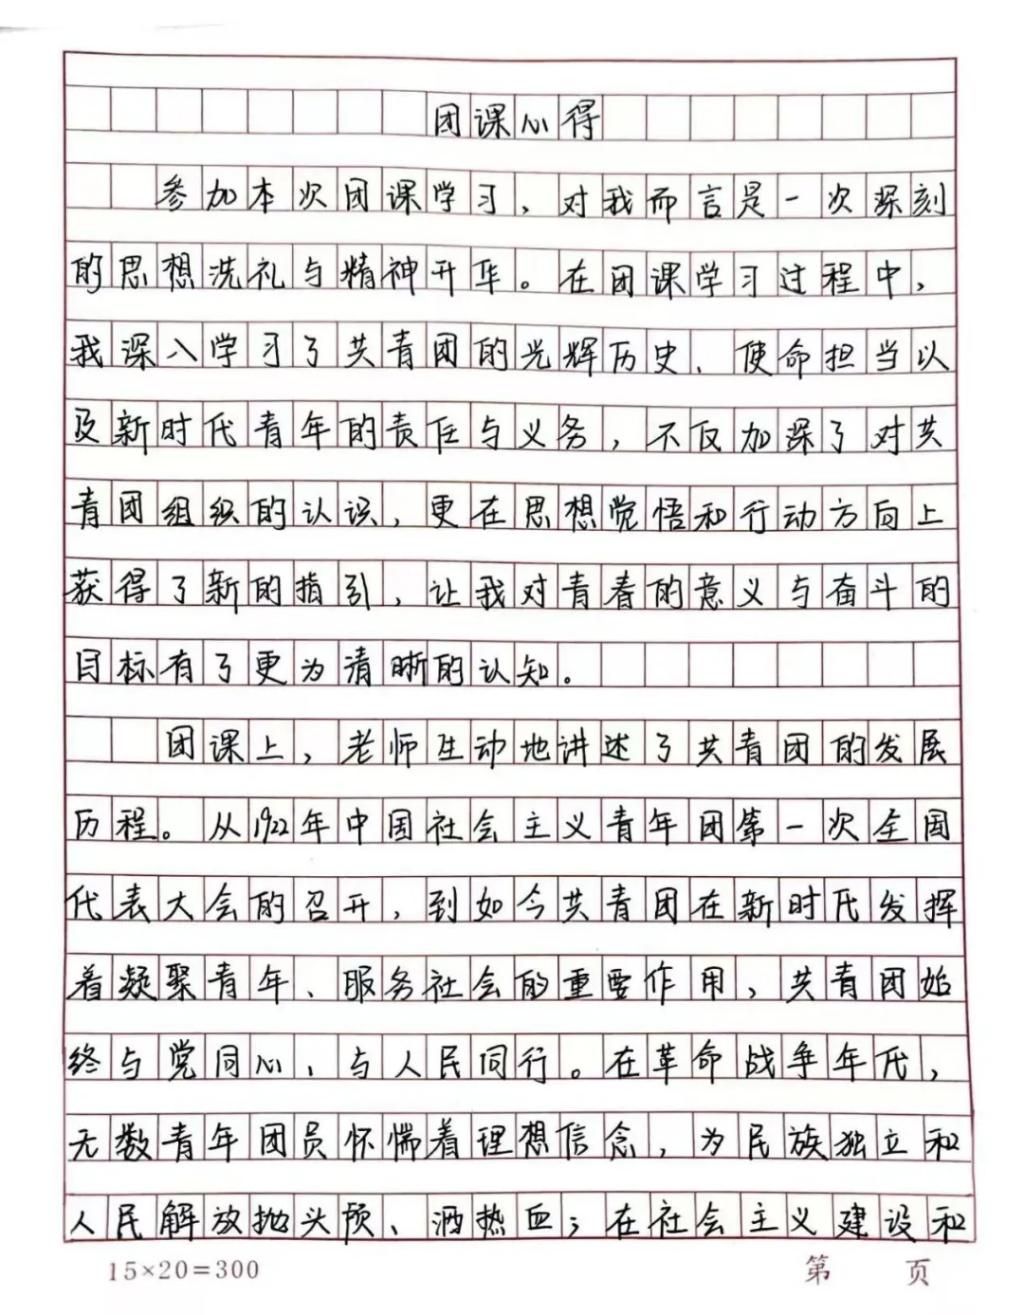 团课心得
参加本次团课学习，对我而言是一次深刻
的思想洗礼与精神升华。在团课学习过程中，
我深入学习了共青团的光辉历史、使命担当以
及新时代青年的责任与义务，不仅加深了对共
青团组织的认识，更在思想觉悟和行动方向上
获得了新的指引，让我对青春的意义与奋斗的
目标有了更为清晰的认知。
团课上，老师生动地讲述了共青团的发展
历程。从1922年中国社会主义青年团第一次全国
代表大会的召开，到如今共青团在新时代发挥
着凝聚青年、服务社会的重要作用，共青团始
终与党同心、与人民同行。在革命战争年代，
无数青年团员怀惴着理想信念，为民族独立和
人民解放抛头颅、洒热血；在社会主义建设和
15×20=300 第 页